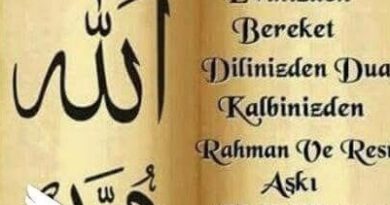 الله
Bereket
Dilinizden Dua
Kalbinizden
Rahman Ve
Aşkı